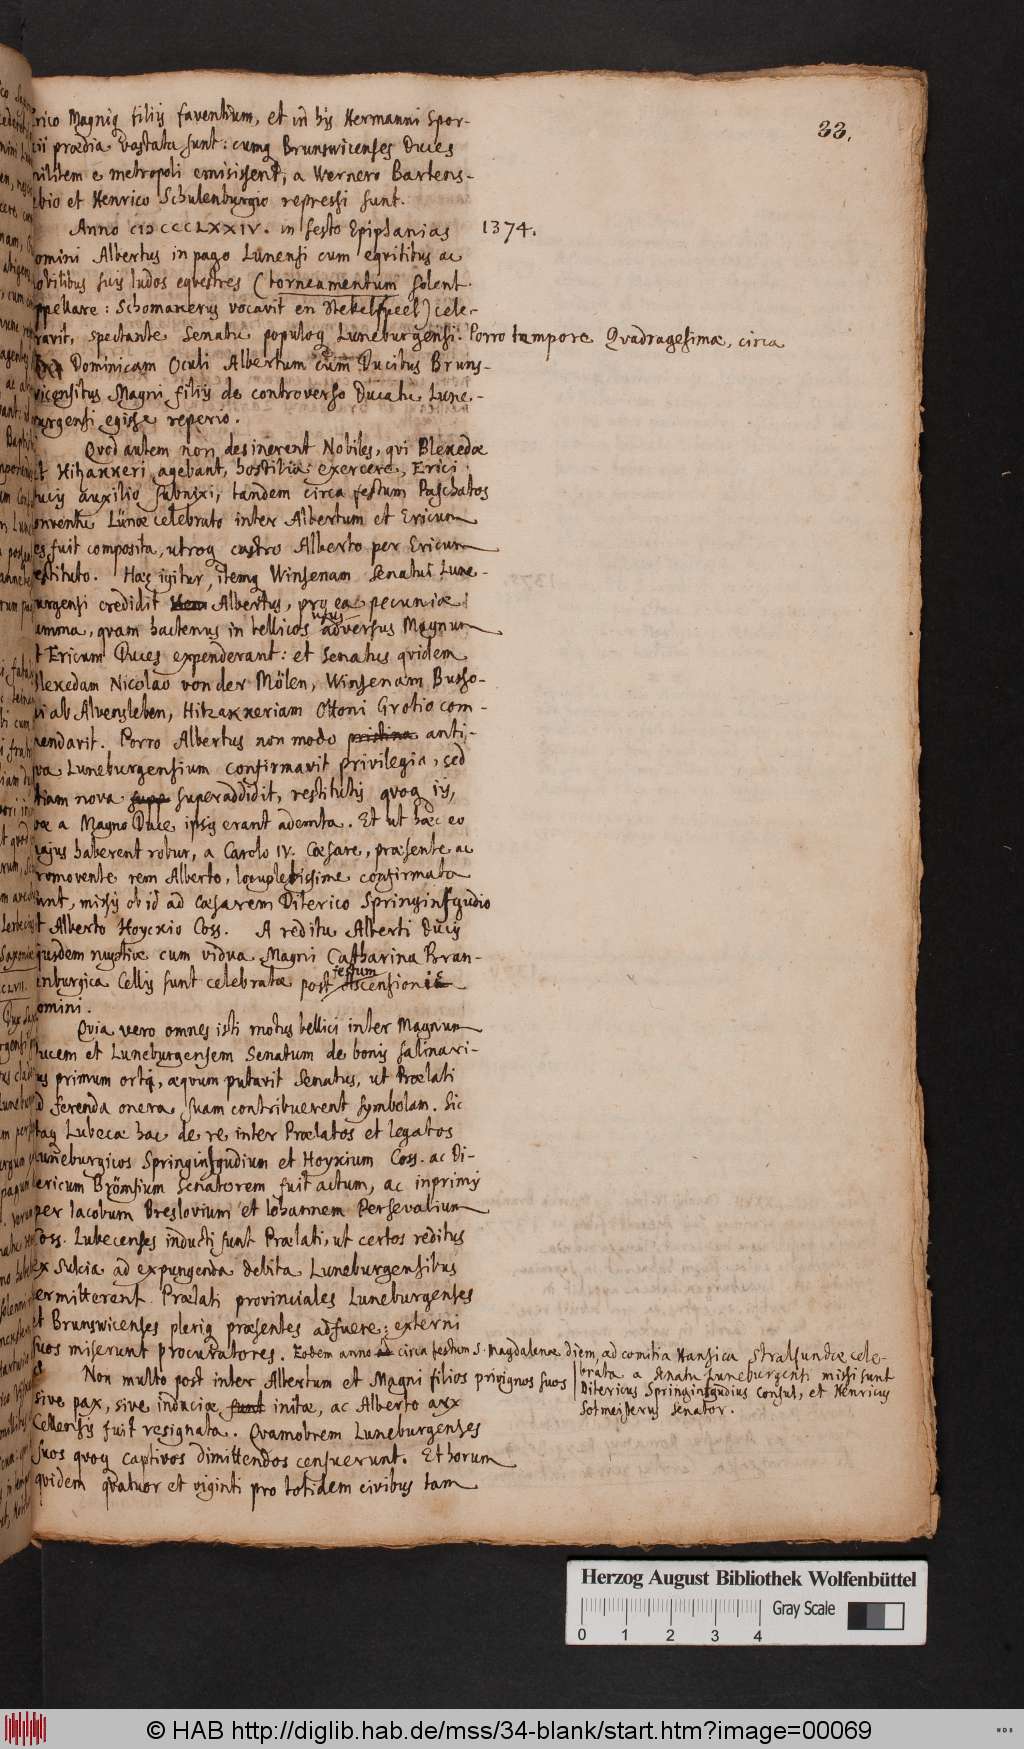 33.
rico Magniq filiis faventium, et in his Hermanni Spor-
cii praedia vastata sunt: cumq Brunswicenses Duces
militem e metropoli emisissent, a Wernero Bartens-
lebio et Henrico Schulenburgio repressi sunt.
Anno CIƆCCCLXXIV. in festo Epiphanias 1374.
omini Albertus in pago Lunensi cum eqvitibus ac
obilibus suis ludos eqvestres (torneamentum solent
ppellare: Schomakerus vocavit en Stekelspeel) cele-
ravit, spectante Senatu populoq Luneburgensi. Porro tempore Qvadragesimae, circa
Dominicam Oculi Albertum cum Ducibus Bruns-
vicensibus Magni filiis de controverso Ducatu Lune-
urgensi egisse reperio.
Qvod autem non desinerent Nobiles, qvi Blekedae
et Hizakkeri agebant, hostilia exercere, Erici
ucis auxilio subnixi, tandem circa festum Paschatos
onventu Lünae celebrato inter Albertum et Ericum
es fuit composita, utroq castro Alberto per Ericum
estituto. Haec igitur, itemq Winsenam Senatui Lune-
urgensi credidit Albertus, pro ea pecuniae
umma, qvam hactenus in bellicos usus adversus Magnum
t Ericum Duces expenderant: et Senatus qvidem
Blekedam Nicolao von der Mölen, Winsenam Busso-
ni ab Alvensleben, Hitzakkeriam Ottoni Grotio com-
mendavit. Porro Albertus non modo pristina anti-
qva Luneburgensium confirmavit privilegia, sed
etiam nova supp superaddidit, restitutis qvoq iis,
vae a Magno Duce ipsis erant ademta. Et ut haec eo
majus haberent robur, a Carolo IV. Caesare, praesente ac
romovente rem Alberto, locupletissime confirmata
unt, missis ob id ad Caesarem Diterico Springinsgudio
t Alberto Hoyckio Coss. A reditu Alberti Ducis
ejusdem nuptiae cum vidua Magni Catharina Bran-
enburgica Cellis sunt celebratae post festum Ascensionis
omini.
Qvia vero omnes isti motus bellici inter Magnum
Ducem et Luneburgensem Senatum de bonis salinari-
us primum orti, aeqvum putavit Senatus, ut Praelati
d ferenda onera suam contribuerent symbolam. Sic
itaq Lubecae hac de re inter Praelatos et legatos
Luneburgicos Springinsgudium et Hoykium Coss. ac Di-
ericum Brömsium Senatorem fuit actum, ac inprimis
per Iacobum Breslovium et Iohannem Persevalium
Coss. Lubecenses inducti sunt Praelati, ut certos reditus
ex Sulcia ad expungenda debita Luneburgensibus
ermitterent. Praelati provinciales Luneburgenses
et Brunswicenses pleriq praesentes adfuere: externi
suos miserunt procuratores. Eodem anno ad circa festum S. Magdalenae diem, ad comitia Hansica Stralsundae cele-
brata a Senatu Luneburgensi missi sunt
Ditericus Springinsgudius Consul, et Henricus
Sotmeisterus Senator.
Non multo post inter Albertum et Magni filios privignos suos
sive pax, sive induciae sunt initae, ac Alberto arx
Cellensis fuit resignata. Qvamobrem Luneburgenses
suos qvoq captivos dimittendos censuerunt. Et horum
qvidem qvatuor et viginti pro totidem civibus tam
Herzog August Bibliothek Wolfenbüttel
Gray Scale
0 1 2 3 4
© HAB http://diglib.hab.de/mss/34-blank/start.htm?image=00069